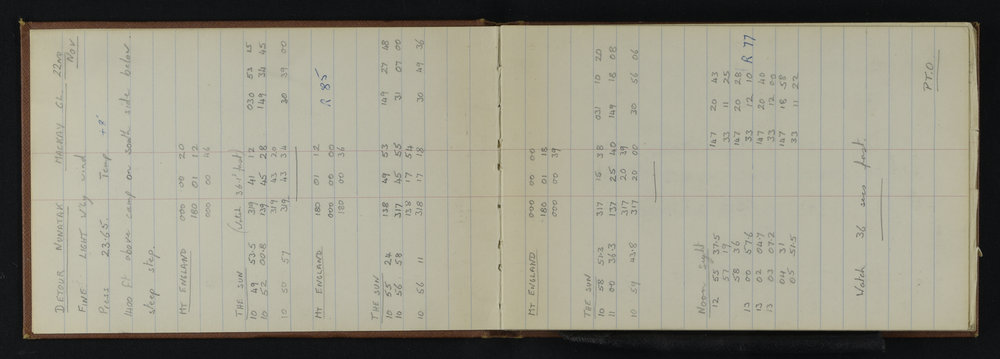 DETOUR NUNATAK MACKAY GL 22ND NOV
FINE LIGHT W'ly wind
Press 23.65 Temp +8
1400 ft above camp on south side below
steep step.
MT ENGLAND 000 00 20
180 01 12
000 00 46
THE SUN
10 49 53.5 319 41 12 030 53 15
10 52 00.8 139 45 28 149 34 45
319 43 20
10 50 57 319 43 34 30 39 00
MT ENGLAND 180 01 12 R 85
000 00 36
180
THE SUN
10 55 24 138 49 53 149 27 48
10 56 58 317 45 55 31 07 00
138 17 54
10 56 11 318 17 18 30 49 36
MT ENGLAND 000 00 00
180 01 18
000 00 39
THE SUN
10 58 51.3 317 15 38 031 10 20
11 00 36.3 137 25 40 149 18 08
317 20 39
10 59 43.8 317 20 00 30 56 06
Noon sight
12 55 37.5 147 20 43
57 19 33 11 25
58 36 147 20 28
13 00 57.6 33 12 10 R 77
13 02 04.7 147 20 40
13 03 07.2 33 12 00
04 31 147 18 58
05 51.5 33 11 22
Watch 36 secs fast.
P.T.O.